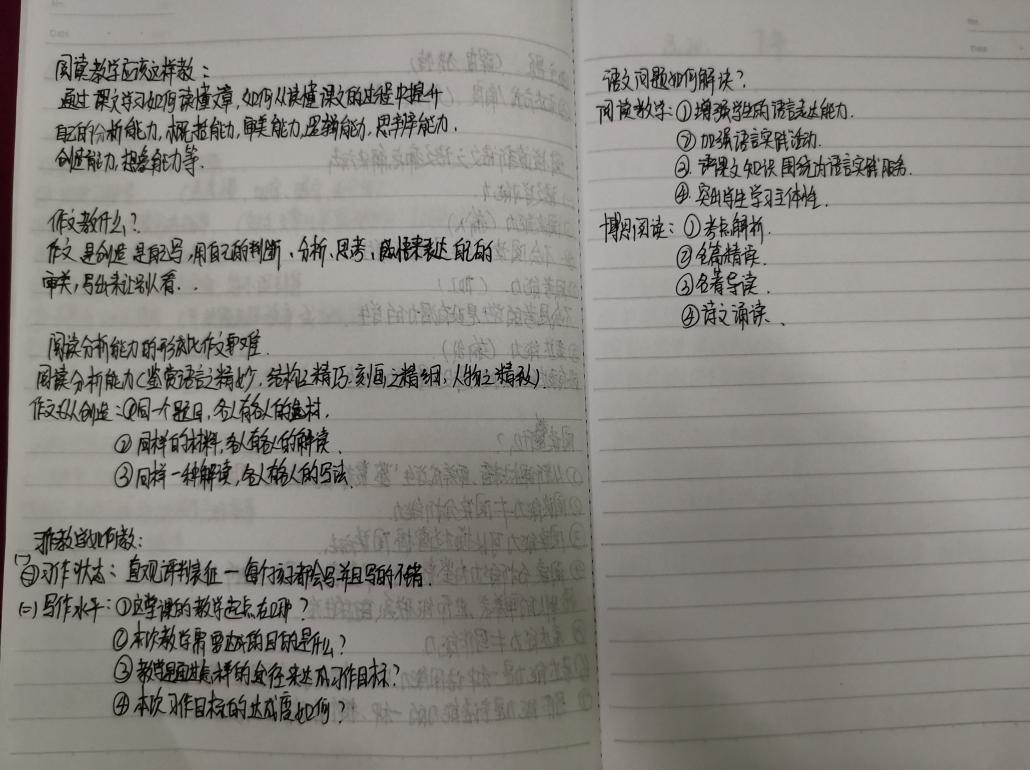 阅读教学应该这样教：
通过课文学习如何读懂文章，如何从读懂课文的过程中提升
自己的分析能力，概括能力，审美能力，逻辑能力，思辨能力，
创造能力，想象能力等．
作文教什么？
作文是创造是自己写，用自己的判断、分析、思考、感悟来表达自己的
审美，写出来让别人看．
阅读分析能力的形成比作文要难．
阅读分析能力（鉴赏语言之精妙，结构之精巧，刻画之精细，人物之精致）
作文可以创造：①同一个题目，各人有各人的选材．
②同样的材料，各人有各人的解读．
③同样一种解读，各人有各人的写法．
习作教学如何教：
(一)习作状态：直观评判表征一每个孩子都会写并且写的不错．
(二)写作水平：①这堂课的教学起点在哪？
②本次教学需要达成的目的是什么？
③教学是通过怎样的途径来达成习作目标？
④本次习作目标的达成度如何？
语文问题如何解决？
阅读教学：①增强学生的语言表达能力．
②加强语言实践活动．
③课文知识 为语言实践服务．
④突出学生学习主体性．
博思阅读：①考点解析．
②名篇精读．
③名著导读．
④诗文诵读．